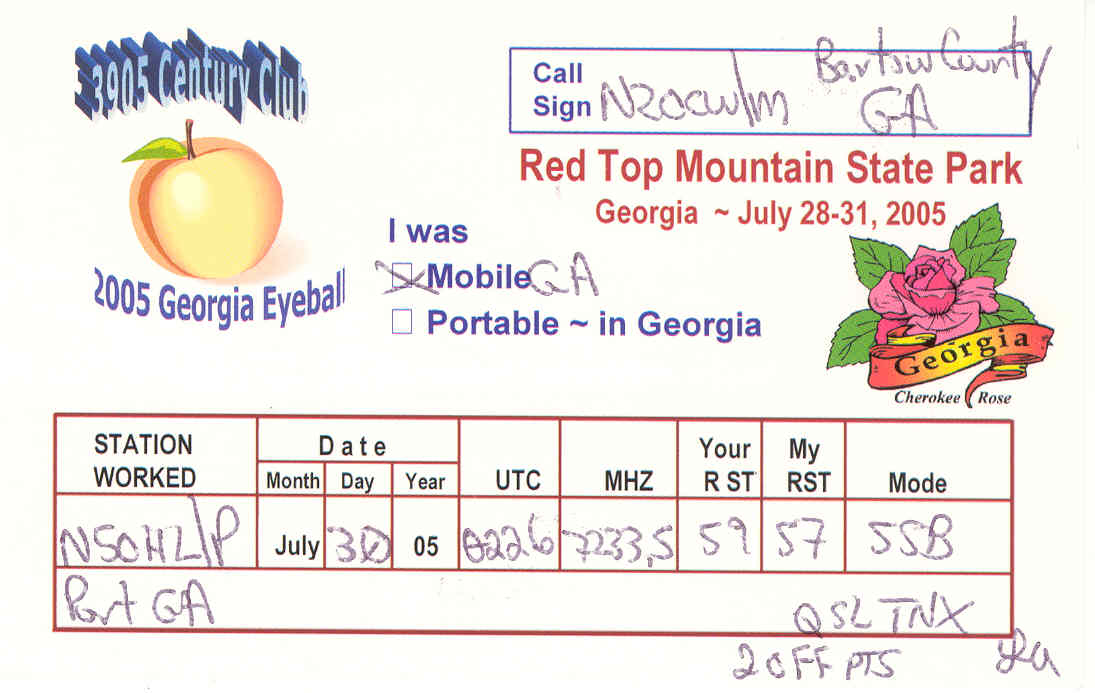 3905 Century Club
2005 Georgia Eyeball
Call Sign N2OCW/M Bartow County GA
Red Top Mountain State Park
Georgia ~ July 28-31, 2005
I was
Mobile GA
Portable ~ in Georgia
Georgia
Cherokee Rose
STATION WORKED Date Month Day Year UTC MHZ Your RST My RST Mode
N5OHL/P July 30 05 0226 7233,5 59 57 SSB
Port GA
QSL TNX
2 OFF PTS